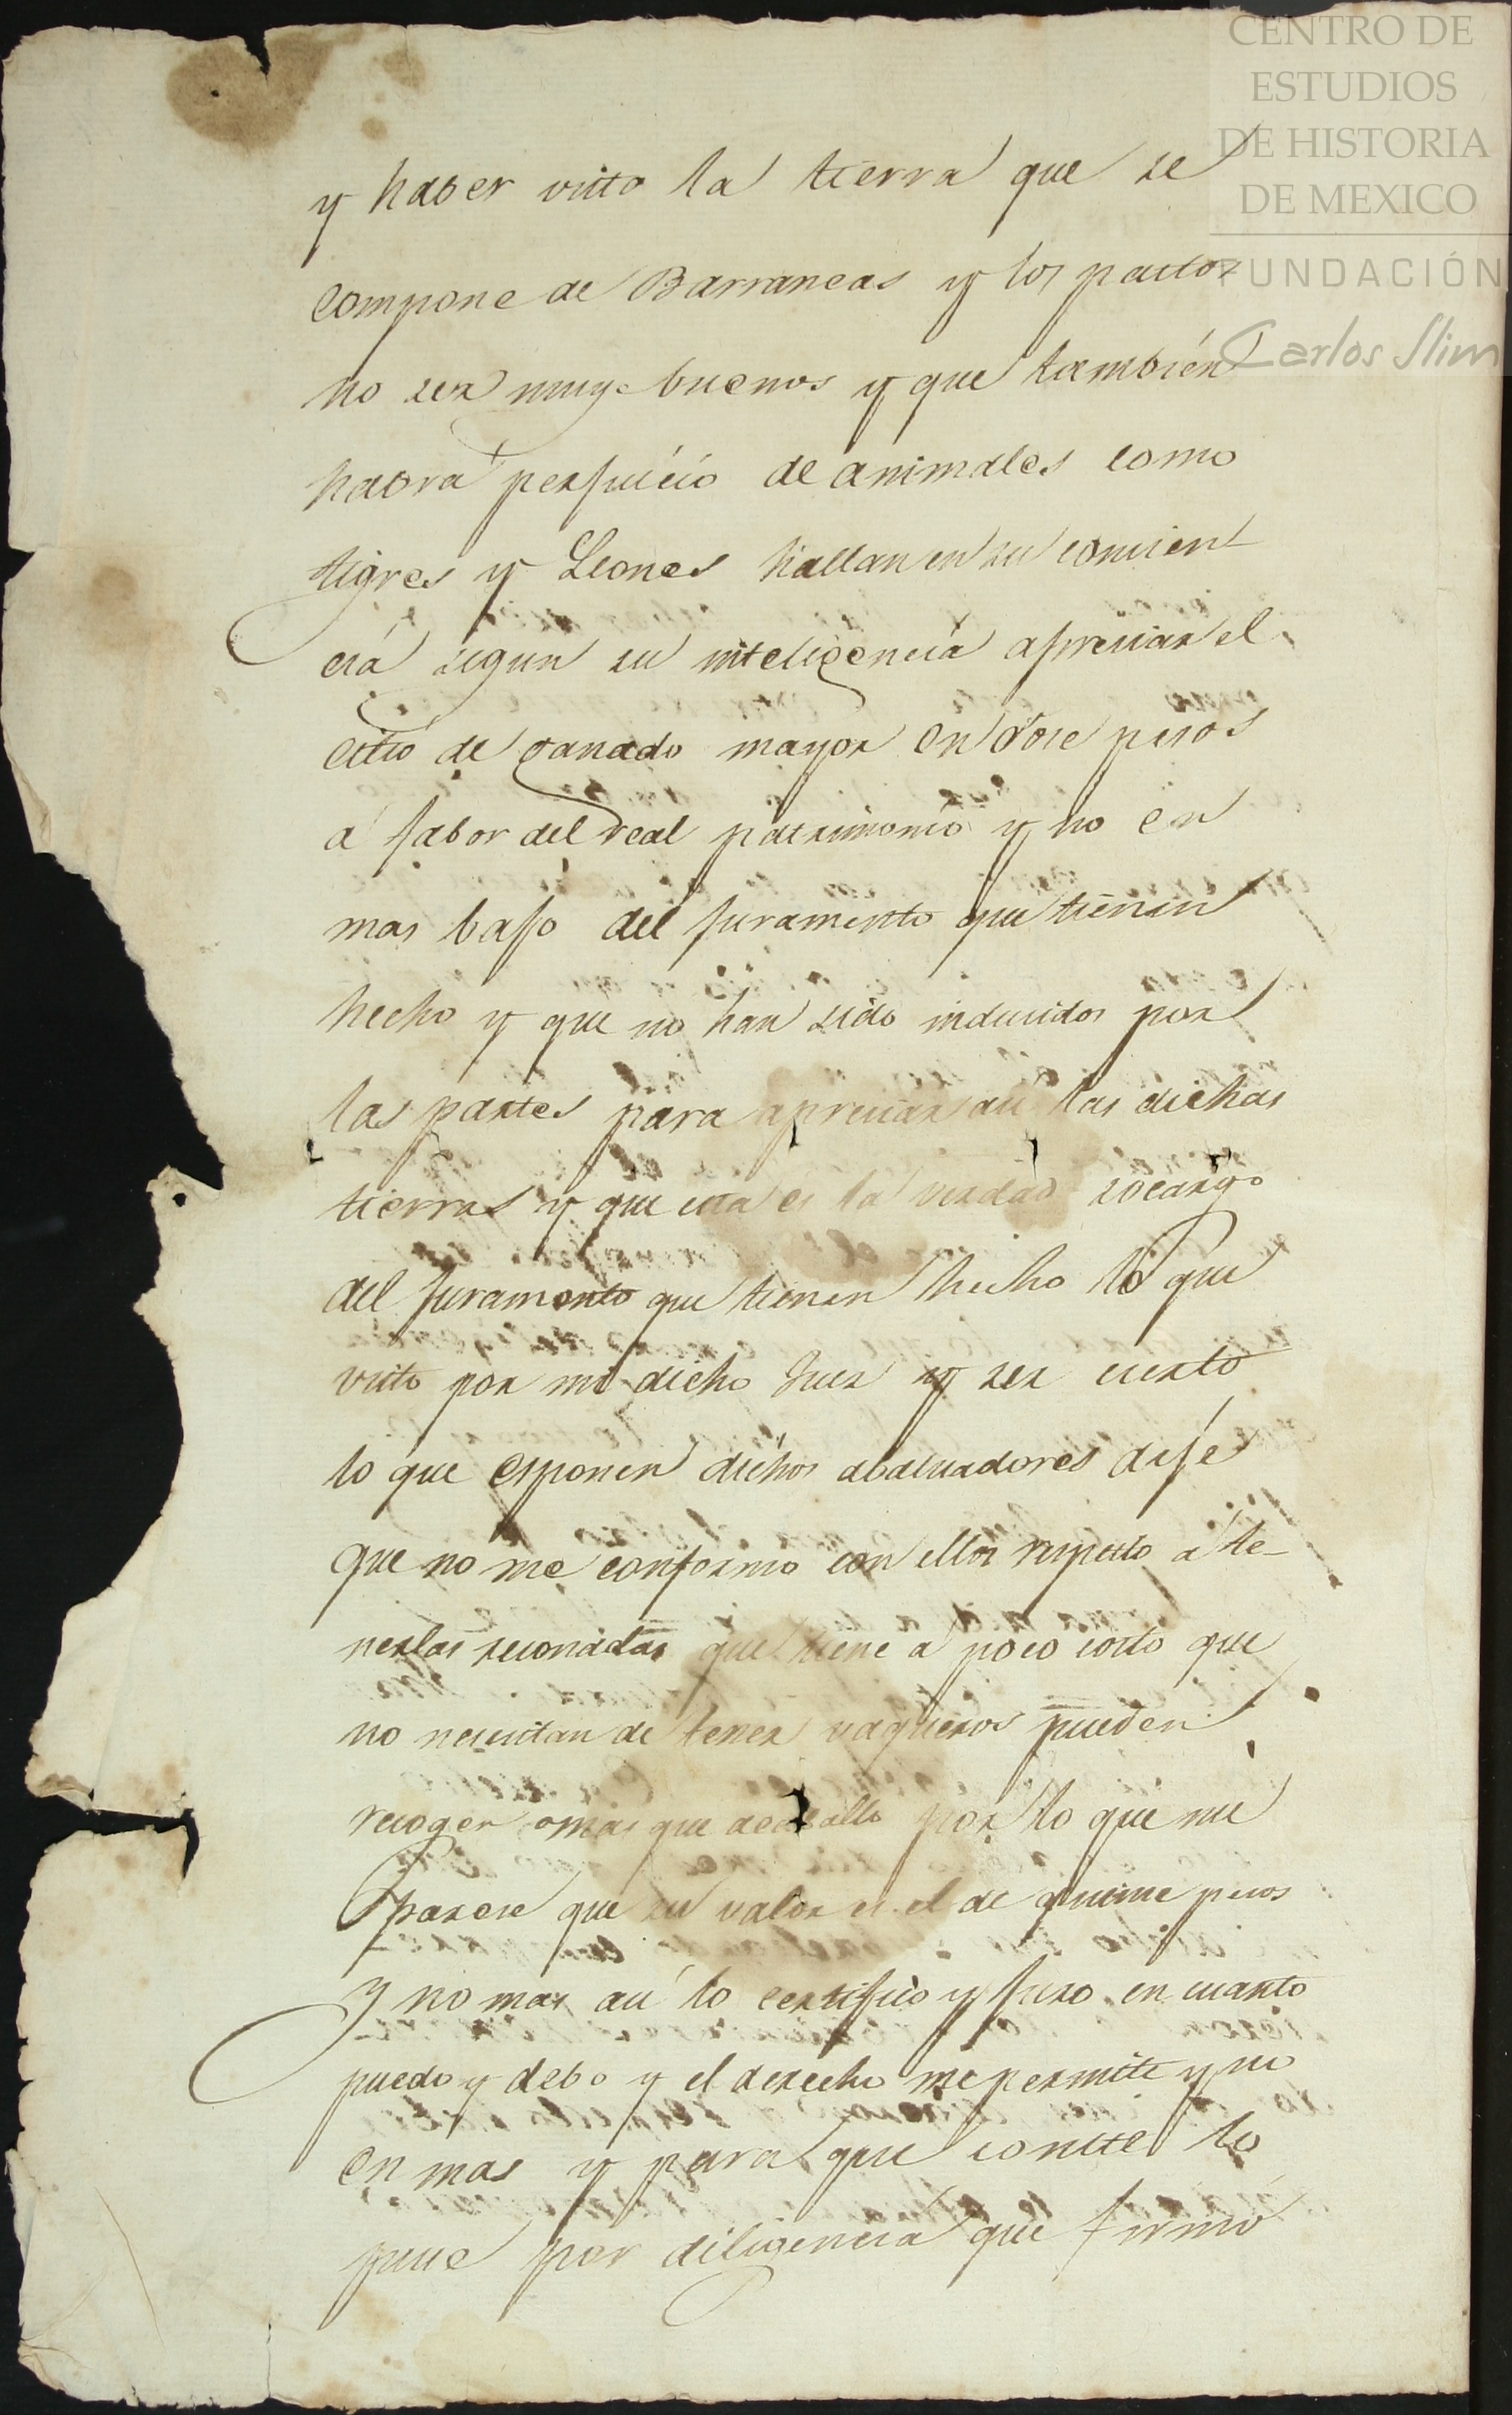 CENTRO DE
ESTUDIOS
DE HISTORIA
DE MEXICO
FUNDACIÓN
Carlos Slim
y haber visto la tierra que se
compone de Barrancas y los pastos
no ser muy buenos y que también
habra perjuicio de animales como
tigres y Leones hallan en su concien
cia segun su inteligencia apreciar el
citio de ganado mayor en dose pesos
a fabor del real patrimonio y no en
mas bajo del juramento que tienen
hecho y que no han sido inducidos por
las partes para apreciar asi las dichas
tierras y que esta es la verdad socargo
del juramento que tienen hecho lo que
visto por mi dicho Juez y ser cierto
lo que esponen dichos abaluadores dije
que no me conformo con ellos respecto a te-
nerlas reconadas que tiene a poco costo que
no necesitan de tener vaqueros pueden
recoger mas que acaballo por lo que me
parese que su valor es el de quince pesos
y no mas asi lo certifico y juro en cuanto
puedo y debo y el derecho me permite y no
en mas y para que conste lo
puse por diligencia que firmó